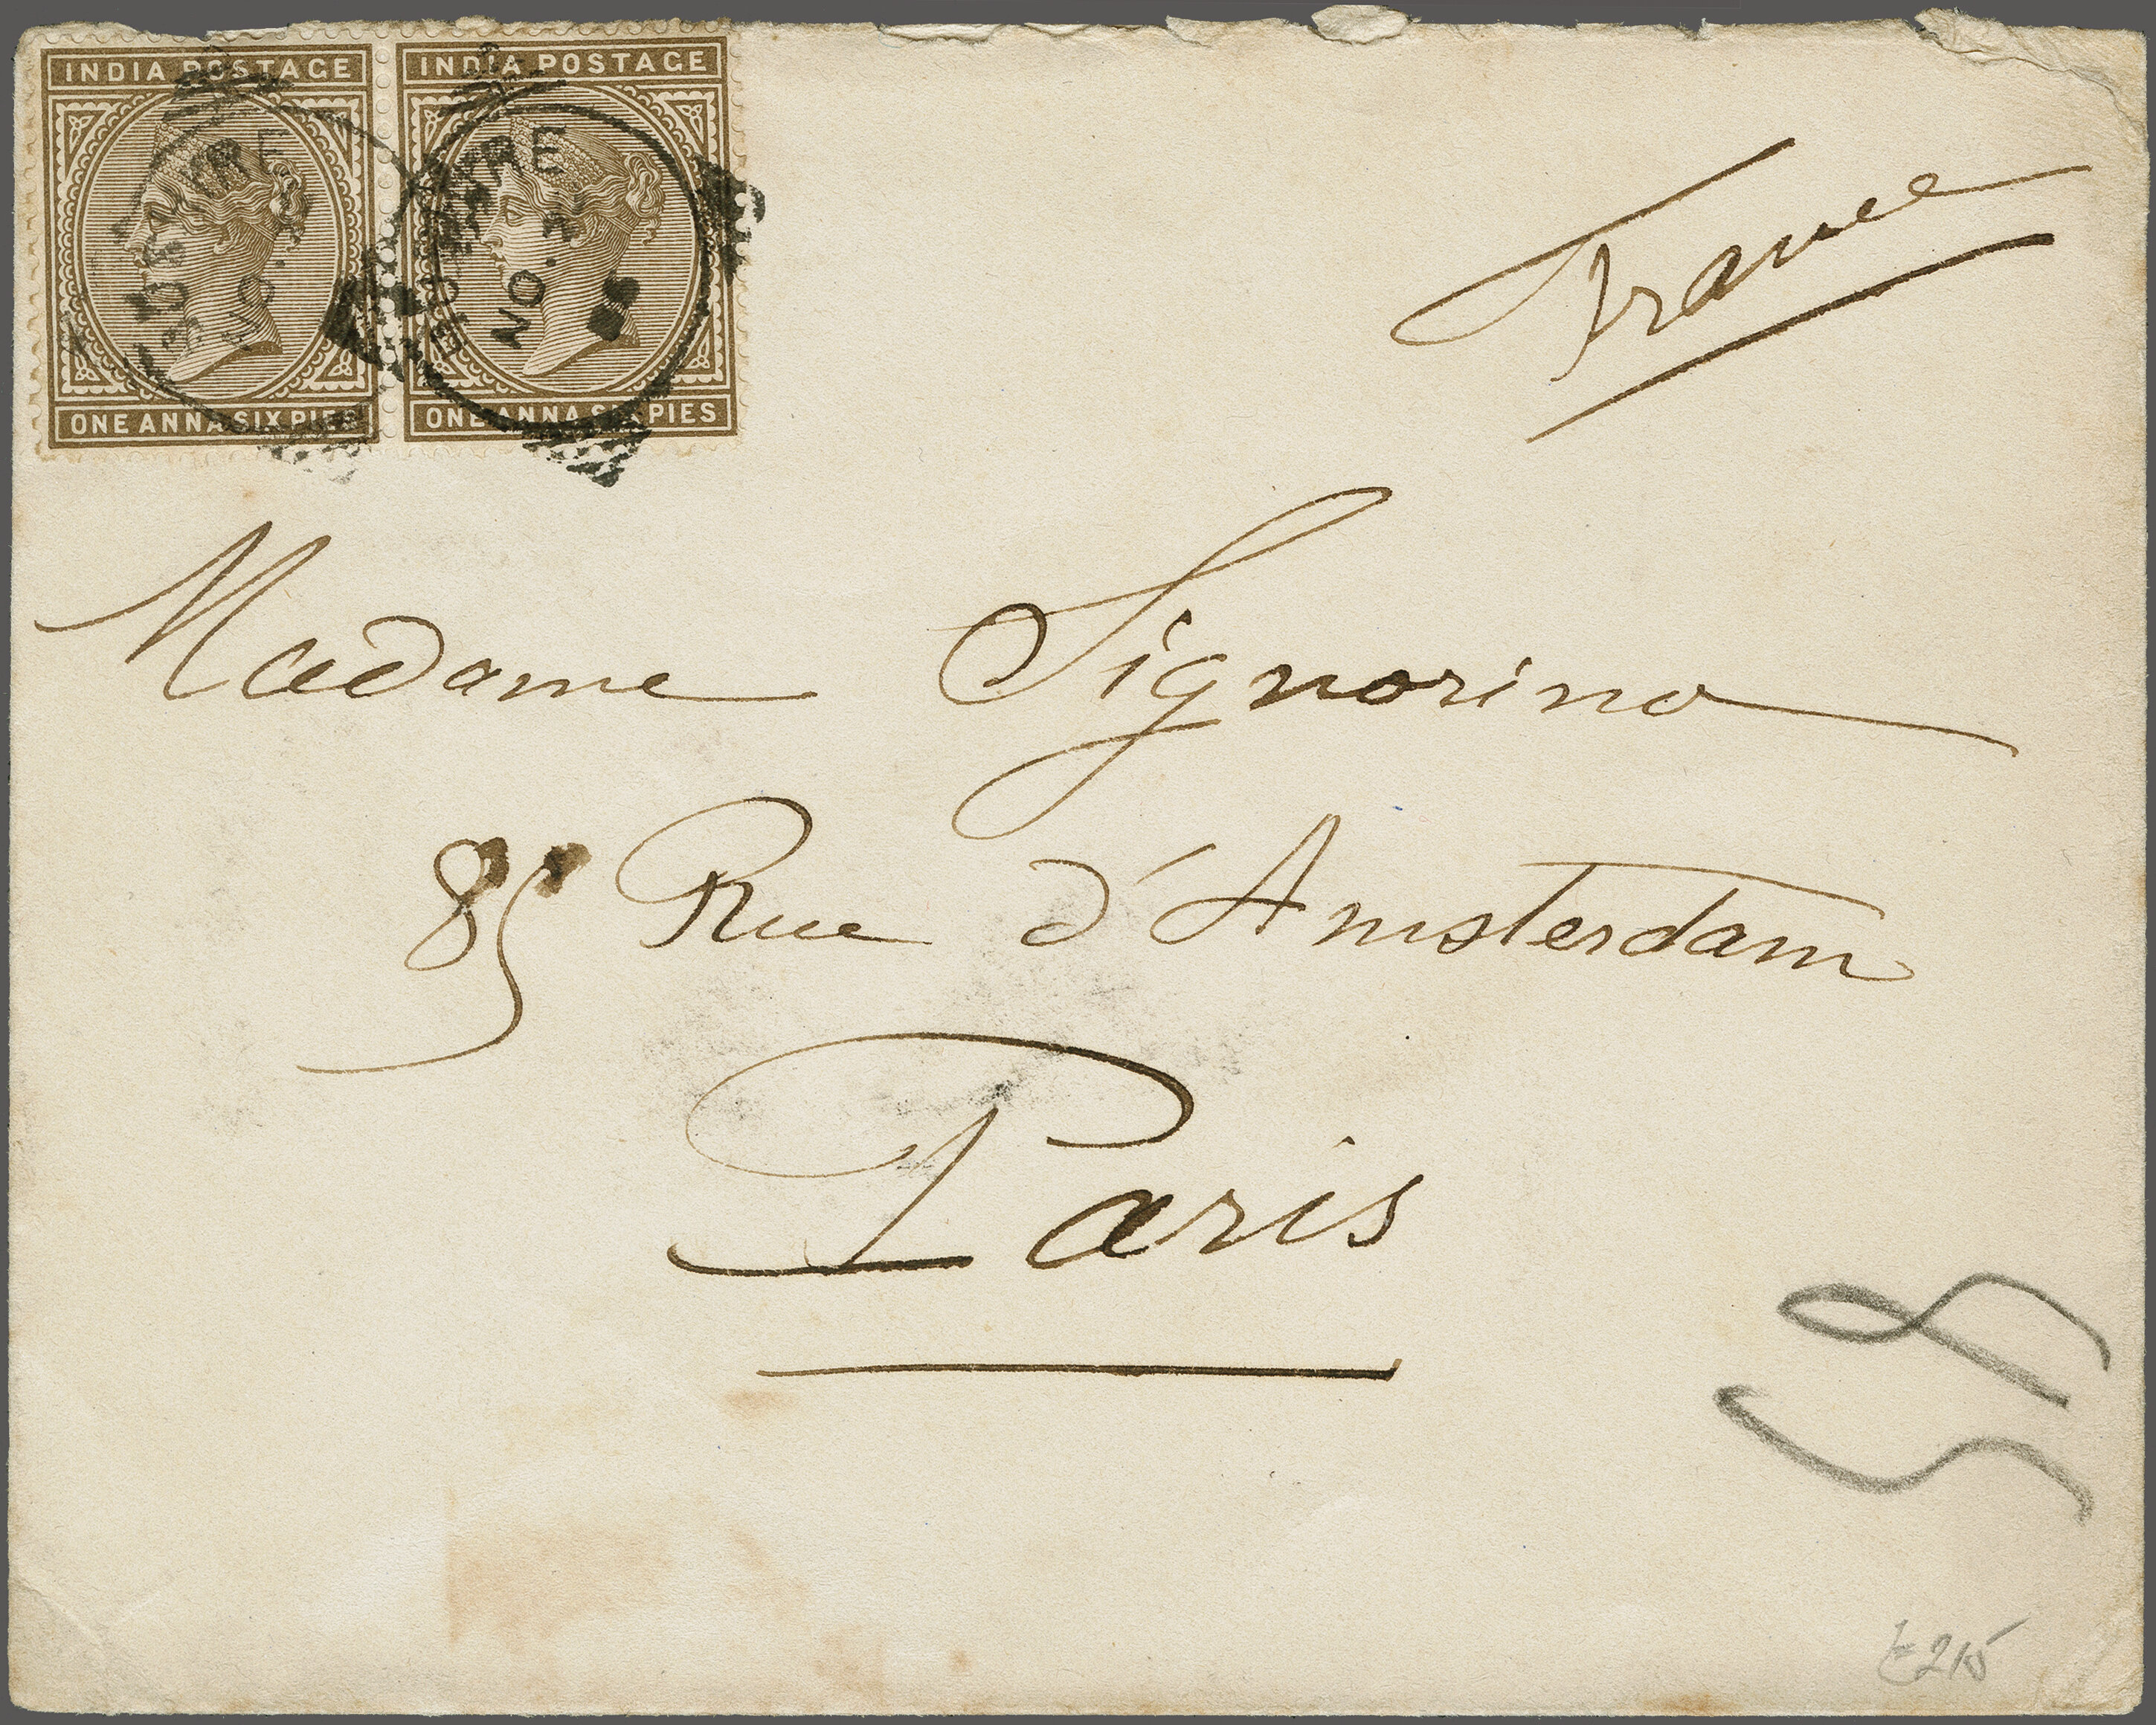 INDIA POSTAGE INDIA POSTAGE
NO. NO.
ONE ANNA SIX PIES ONE ANNA SIX PIES
France
Madame Signorino
85 Rue d'Amsterdam
Paris
£215